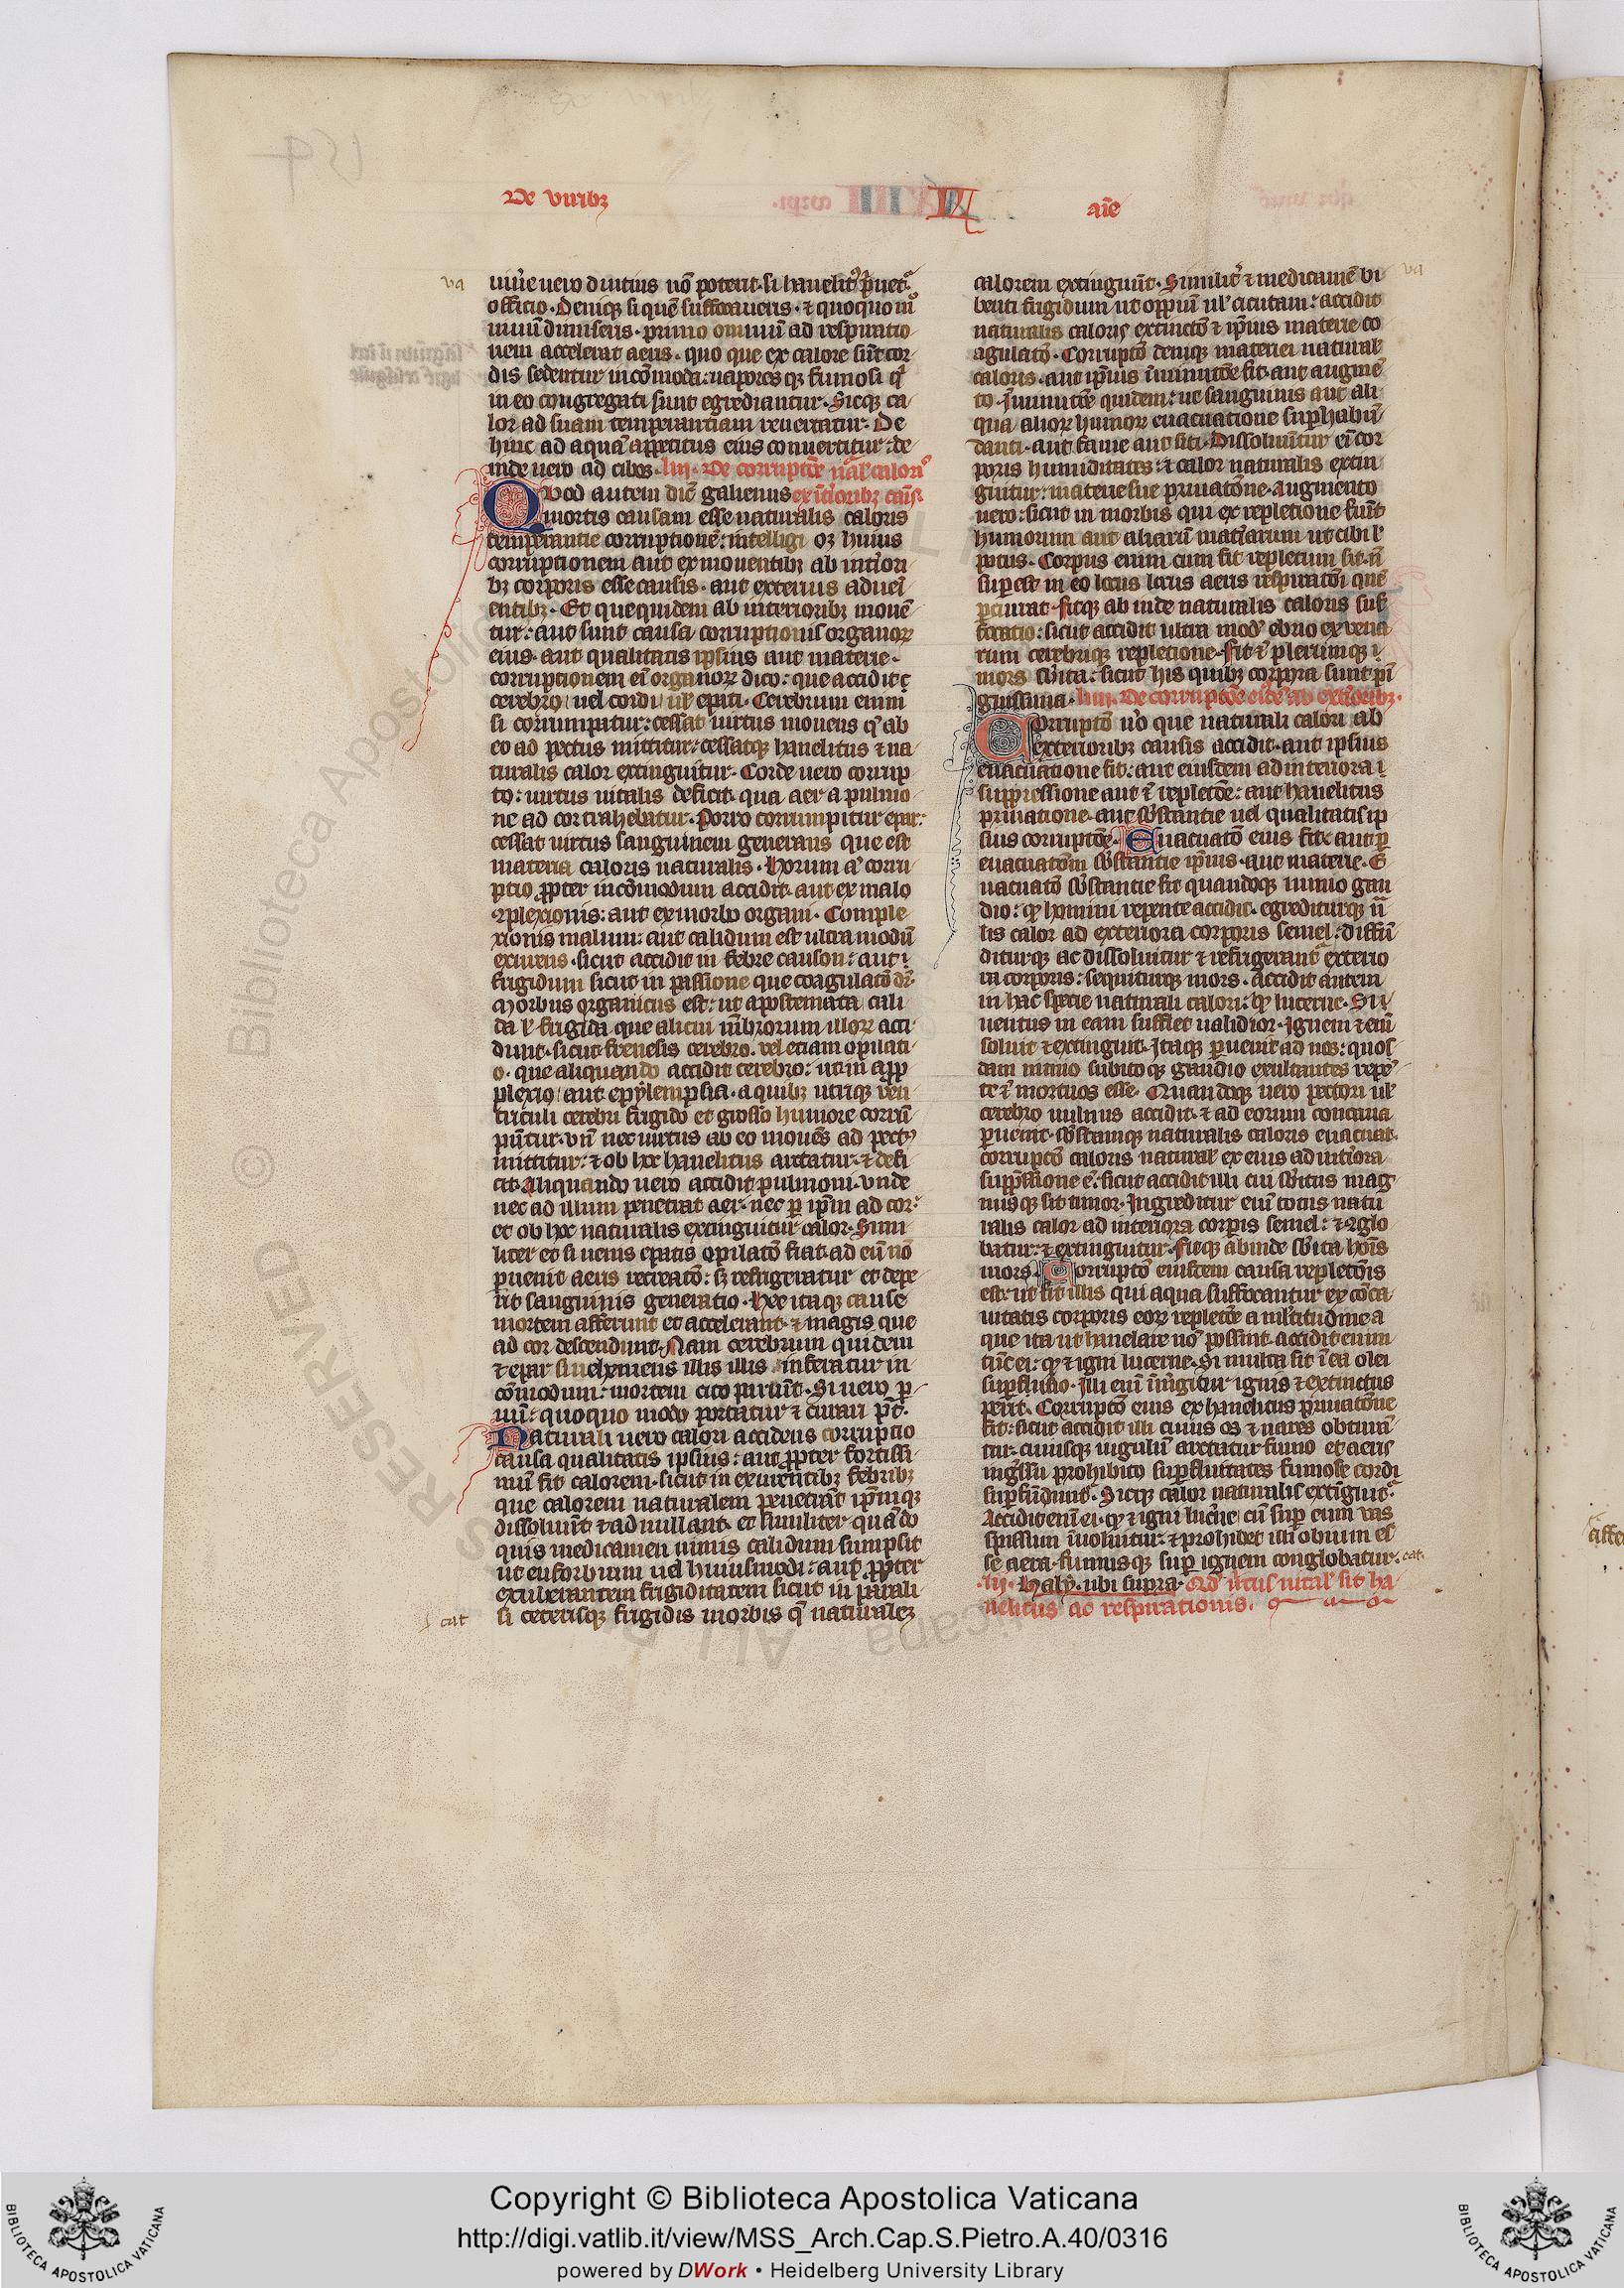 De viribꝫ
aīe
va
uiu̾e uero diutius nō poterit· si hanelit᷒ pͥuet᷑
officio· Deniqꝫ si quē suffocaueris· ⁊ quoquo mͦ
uiuū dimiseris· primo omniū ad respiratio
nem accelerat aeris· quo que ex calore sūt cor
dis sedentur incōmoda: uapores qꝫ fumosi qͥ
in eo congregati sunt egrediantur· Sicqꝫ ca
lor ad suam temperantiam reuertatur· De
hinc ad aquā appetitus eius conuertitur: de
inde uero ad cibos· liij· De corruptōe nāl̓ caloris
Qvod autem dic̄ galienus ex īt̓ioribꝫ cāis·
mortis causam esse naturalis caloris
temperantie corruptionē: intelligi oꝫ huius
corruptionem aut ex mouentibꝫ ab int̓iori
bꝫ corporis esse causis· aut exterius adueī
entibꝫ· Et que quidem ab interioribꝫ mouē
tur: aut sunt causa corruptionis organoꝝ
eius· aut qualitatis ipsius aut materie·
corruptionem eī organoꝝ dico: que accidit ī
cerebro uel cordi ul̓ epati· Cerebrum enim
si corrumpatur: cessat uirtus mouens qͣ ab
eo ad pectus mittitur: cessatqꝫ hanelitus ⁊ na
turalis calor extinguitur· Corde uero corrup
to: uirtus uitalis deficit· qua aer a pulmo
ne ad cor trahebatur· Porro corrumpitur epar:
cessat uirtus sanguinem generans que est
materia caloris naturalis· Horum aͣ corru
ptio ꝓpter incōmodum accidit· aut ex malo
ꝯplexionis: aut ex morbo organi· Comple
xionis malum: aut calidum est ultra modū
exurens· sicut accidit in febre causon: aut ī
frigidum sicut in passione que coagulatō dr̄·
Morbus organicus est: ut apostemata cali
da ul̓ frigida que alicui mēbrorum illoꝝ acci
dunt· sicut frenesis cerebro· vel etiam opilati
o· que aliquando accidit cerebro: ut in apop
plexia aut epylempsia· a quibꝫ utiqꝫ ven
triculi cerebri frigido et grosso humore corrū
pūtur· vn̄ nec uirtus ab eo mouēs ad pect᷒
mittitur: ⁊ ob hoc hanelitus arctatur· ⁊ defi
cit· Aliquando uero accidit pulmoni· vnde
nec ad illum penetrat aer· nec ꝑ ip̄m ad cor·
et ob hoc naturalis extinguitur calor· Simi
liter et si uenis epatis opilatō fiat· ad eū nō
ꝑuenit aeris recreatō: sꝫ refrigeratur et depe
rit sanguinis generatio· Hee itaqꝫ cause
mortem afferunt et accelerant· ⁊ magis que
ad cor descendunt· Nam cerebrum quidem
⁊ epar si uehemens illis inferatur in
cōmodum: mortem cito pariūt· Si uero p
uū: quoquo modo portatur ⁊ curari pōt·
Naturali uero calori accidens corruptio
causa qualitatis ipsius: aut ꝓpter fortissi
mū fit calorem· sicut in exurentibꝫ febribꝫ
que calorem naturalem penetrāt ip̄mqꝫ
dissoluūt ⁊ adnullant· et similiter quādo
quis medicamen nimis calidum sumpsit
ut euforbium uel huiusmodi: aut ꝓpter
exuberantem frigiditatem sicut in parali
si ceterisqꝫ frigidis morbis qͥ naturalez
cat
va
calorem extinguūt· Similit̓ ⁊ medicamē bi
benti frigidum ut oppiū ul̓ cicutam: accidit
naturalis caloris extinctō ⁊ ip̄ius materie co
agulatō· Corruptō deniqꝫ materiei natural̓
caloris· aut ip̄ius īminutōe fit· aut augmē
to· Iminutōe quidem: ut sanguinis aut ali
qua alioꝝ humoꝝ euacuatione suꝑhabū
danti· aut fame aut siti· Dissoluūtur eī cor
poris humiditates: ⁊ calor naturalis extin
guitur: materie sue priuatōne· Augmento
uero: sicut in morbis qui ex repletione fiūt
humorum aut aliarū mat̓iarum ut cibi ul̓
potus· Corpus enim cum sit repletum sit· n̄
suꝑest in eo locus locus aeris respiratōi quē
ꝑcurat· fitqꝫ ab inde naturalis caloris suf
focatio: sicut accidit ultra modū ebrio ex vena
rum cerebriqꝫ repletione· Fit ī plerumqꝫ ī
mors sb̓ita: sicut his quibꝫ corpora sunt pī
guissima· liiij· De corruptōe eiꝰdē ab ext̓ioribꝫ·
Corruptō u̾o que naturali calori ab
exterioribꝫ causis accidit· aut ipsius
euacuatione fit: aut eiusdem ad interiora ī
suppressione aut ī repletōe: aut hanelitus
priuatione· aut sb̓stantie uel qualitatis ip
sius corruptōe· Euacuatō eius fit· aut ꝑ
euacuatōm sb̓stantie ip̄ius· aut materie· E
uacuatō sb̓stantie fit quandoqꝫ nimio gau
dio: qͦ homini repente accidit· egrediturqꝫ nͣ
lis calor ad exteriora corporis semel: diffū
diturqꝫ ac dissoluitur ⁊ refrigerant᷑ exterio
ra corporis: sequiturqꝫ mors· Accidit autem
in hac specie naturali calori: qͦ lucerne· Si
uentus in eam sufflet ualidior· Ignem ⁊ enī
soluit ⁊ extinguit· Itaqꝫ ꝑuenit ad nos: quos
dam nimio subito qꝫ gaudio exultantes repē
te ⁊ mortuos esse· Quandoqꝫ uero pectori ul̓
cerebro uulnus accidit· ⁊ ad eorum concaua
ꝑuenit· sb̓stamqꝫ naturalis caloris euacuat·
corruptō caloris natural̓ ex eius ad int̓iora
supp̄ssione ē: sicut accidit illi cui sb̓itus mag
nusqꝫ fit timor· Ingreditur enī totus natu
ralis calor ad interiora corpis semel: ⁊ ꝯglo
batur: ⁊ extinguitur· Fitqꝫ abinde sb̓ita hoīs
mors· Corruptō eiusdem causa repletōis
est: ut fit illis qui aqua suffocantur ex cōca
uitatis corporis eoꝝ repletōe a ml̓titudine a
que ita ut hanelare nō possint· accidit enim
tūc ei: qͦ ⁊ igni lucerne· Si multa sit ī ea olei
suꝑfluitio· Illi enī īmergitur ignis ⁊ extinctus
perit· Corruptō eius ex hanelitus priuatōne
fit: sicut accidit illi cuius os ⁊ nares obturā
tur· cuiusqꝫ uigulū arctatur fumo et aeris
ing̓ssu prohibito suꝑfluitates fumose cordi
suꝑfūdunt᷑· Sicqꝫ calor naturalis extīguit᷑·
Accidit enī ei· qͦ ⁊ igni luc̓ne cū suꝑ eum vas
spissum īuoluitur: ⁊ prohibet illi obuium es
se aera· fumusqꝫ suꝑ ignem conglobatur· cat·
·lv· Haly· ubi supra· Qd̓ v̓tus uital̓ sit ha
nelitus ac respirationis·
Copyright © Biblioteca Apostolica Vaticana
http://digi.vatlib.it/view/MSS_Arch.Cap.S.Pietro.A.40/0316
powered by DWork • Heidelberg University Library